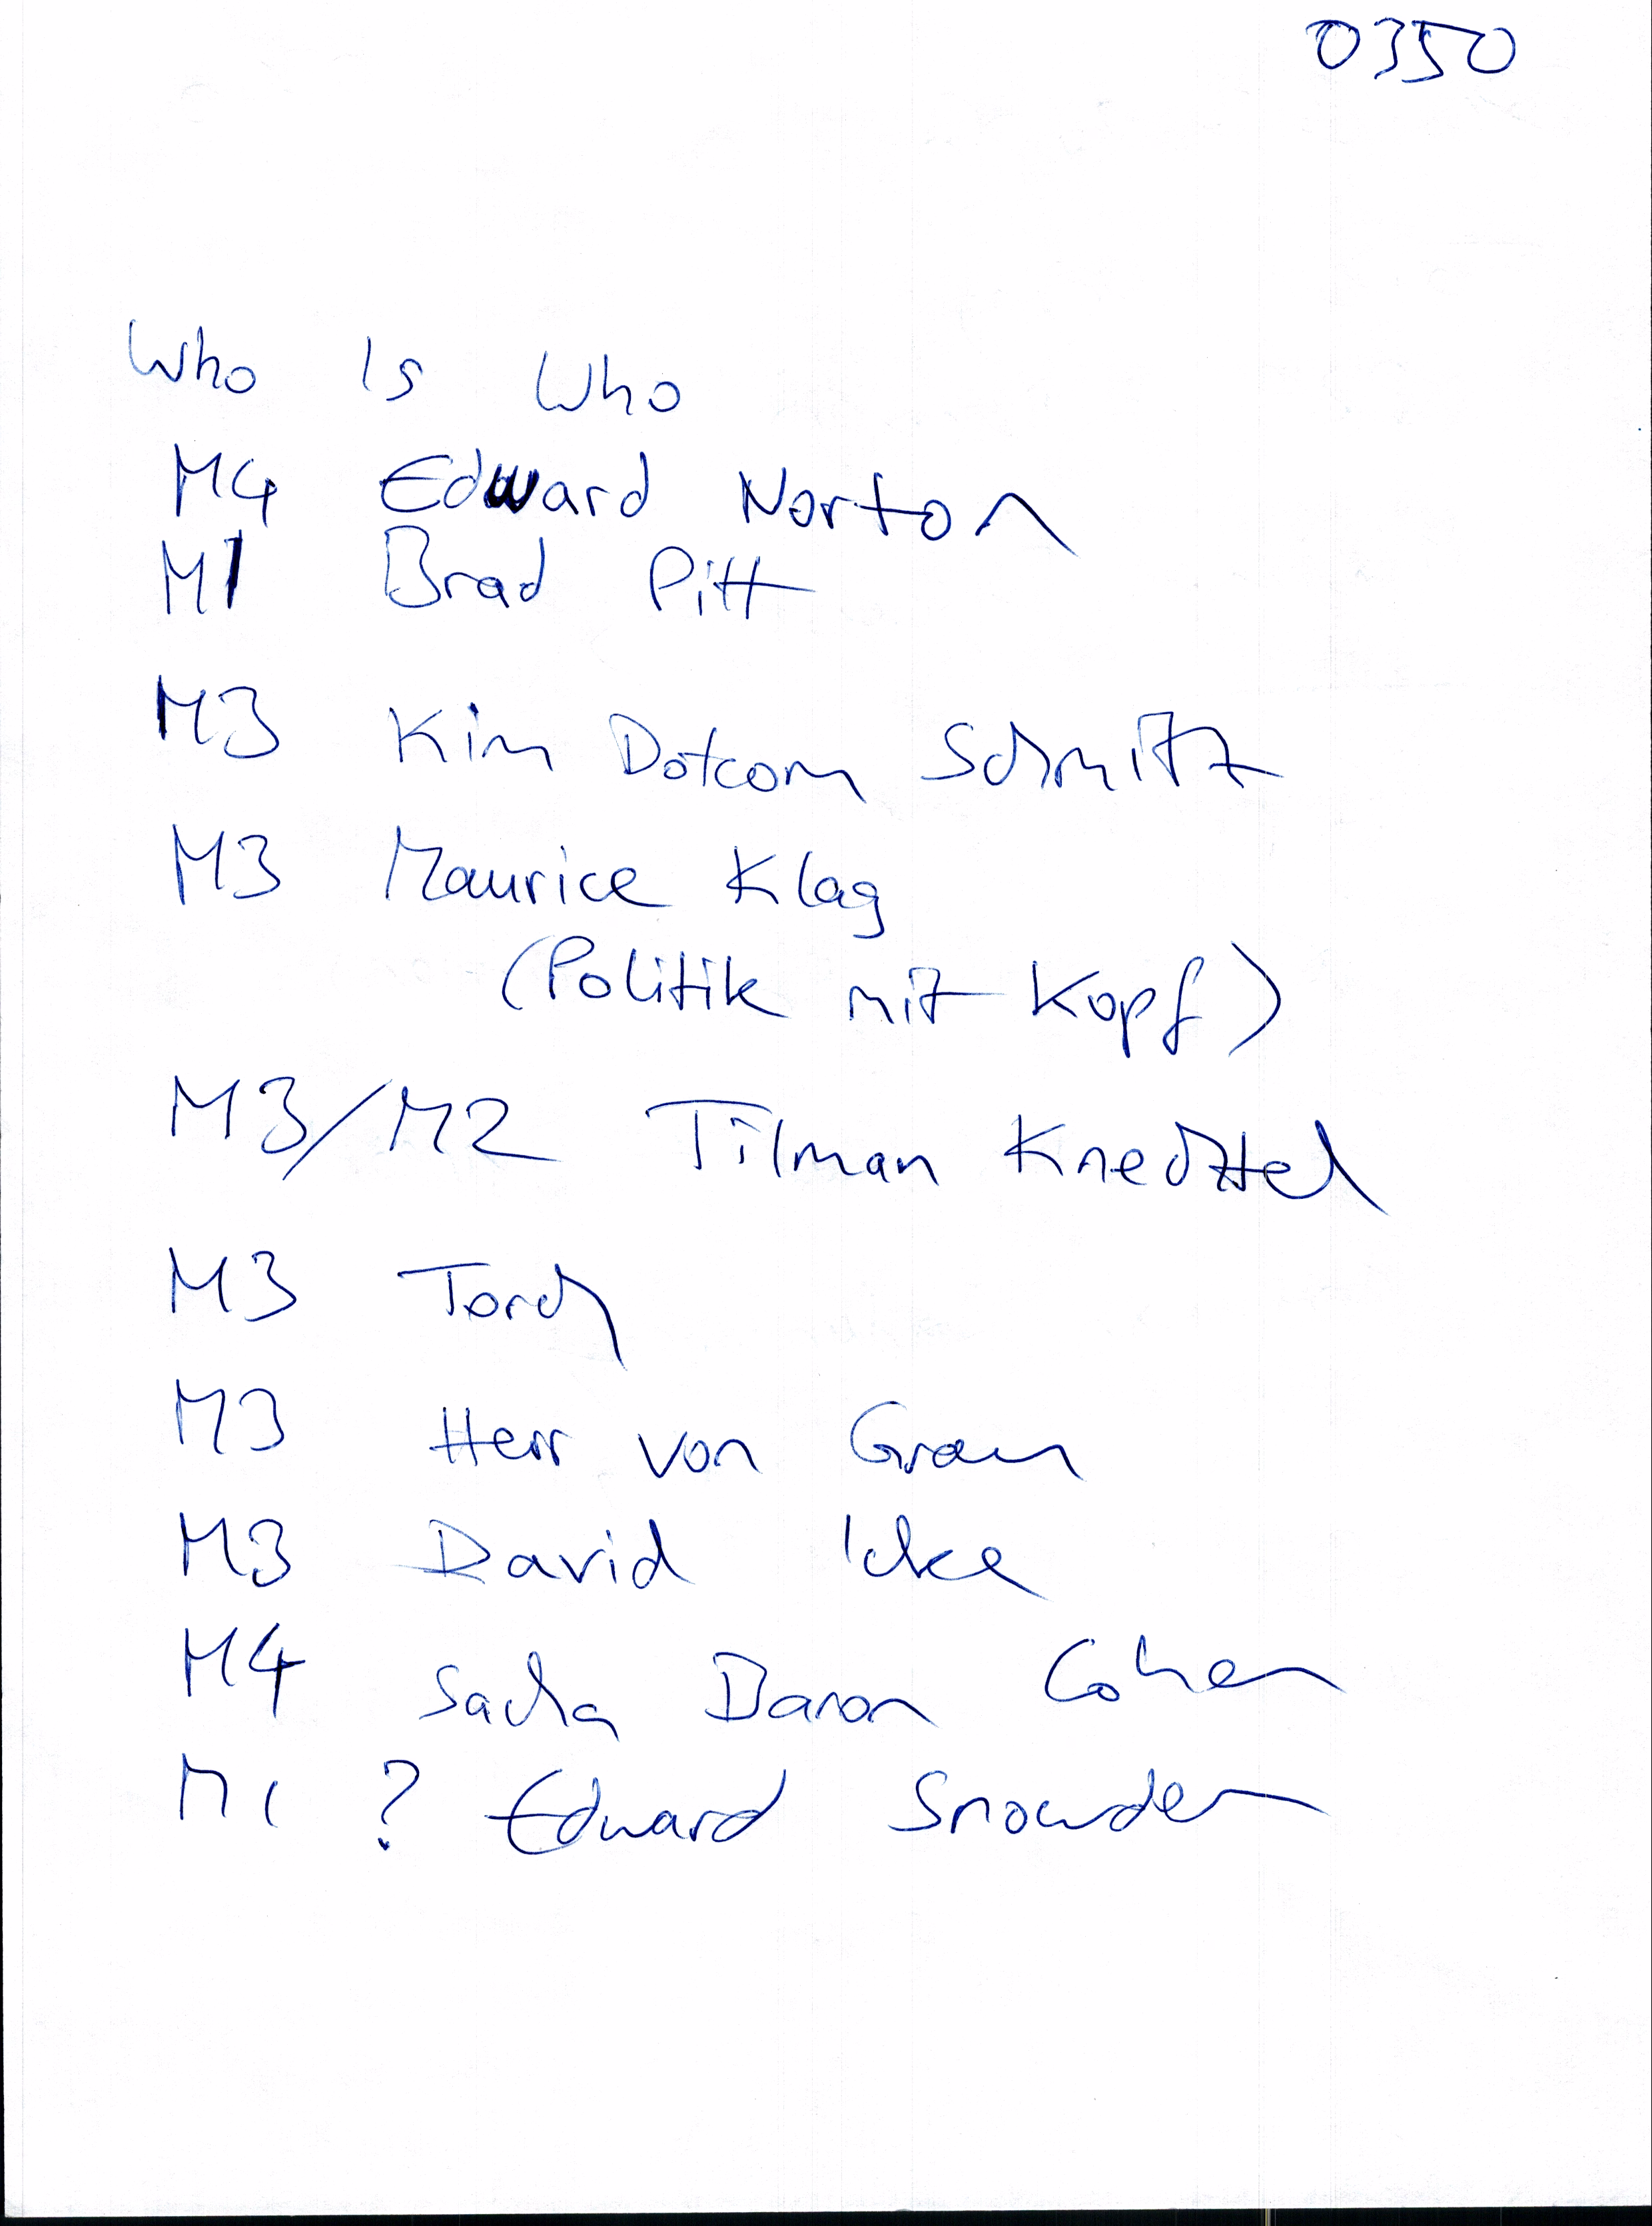 0350
Who Is Who
M4 Edward Norton
M1 Brad Pitt
M3 Kim Dotcom Schmitz
M3 Maurice Klag
(Politik mit Kopf)
M3/M2 Tilman Knechtel
M3 Torch
M3 Herr von Grau
M3 David Icke
M4 Sacha Baron Cohen
M1 ? Edward Snowden